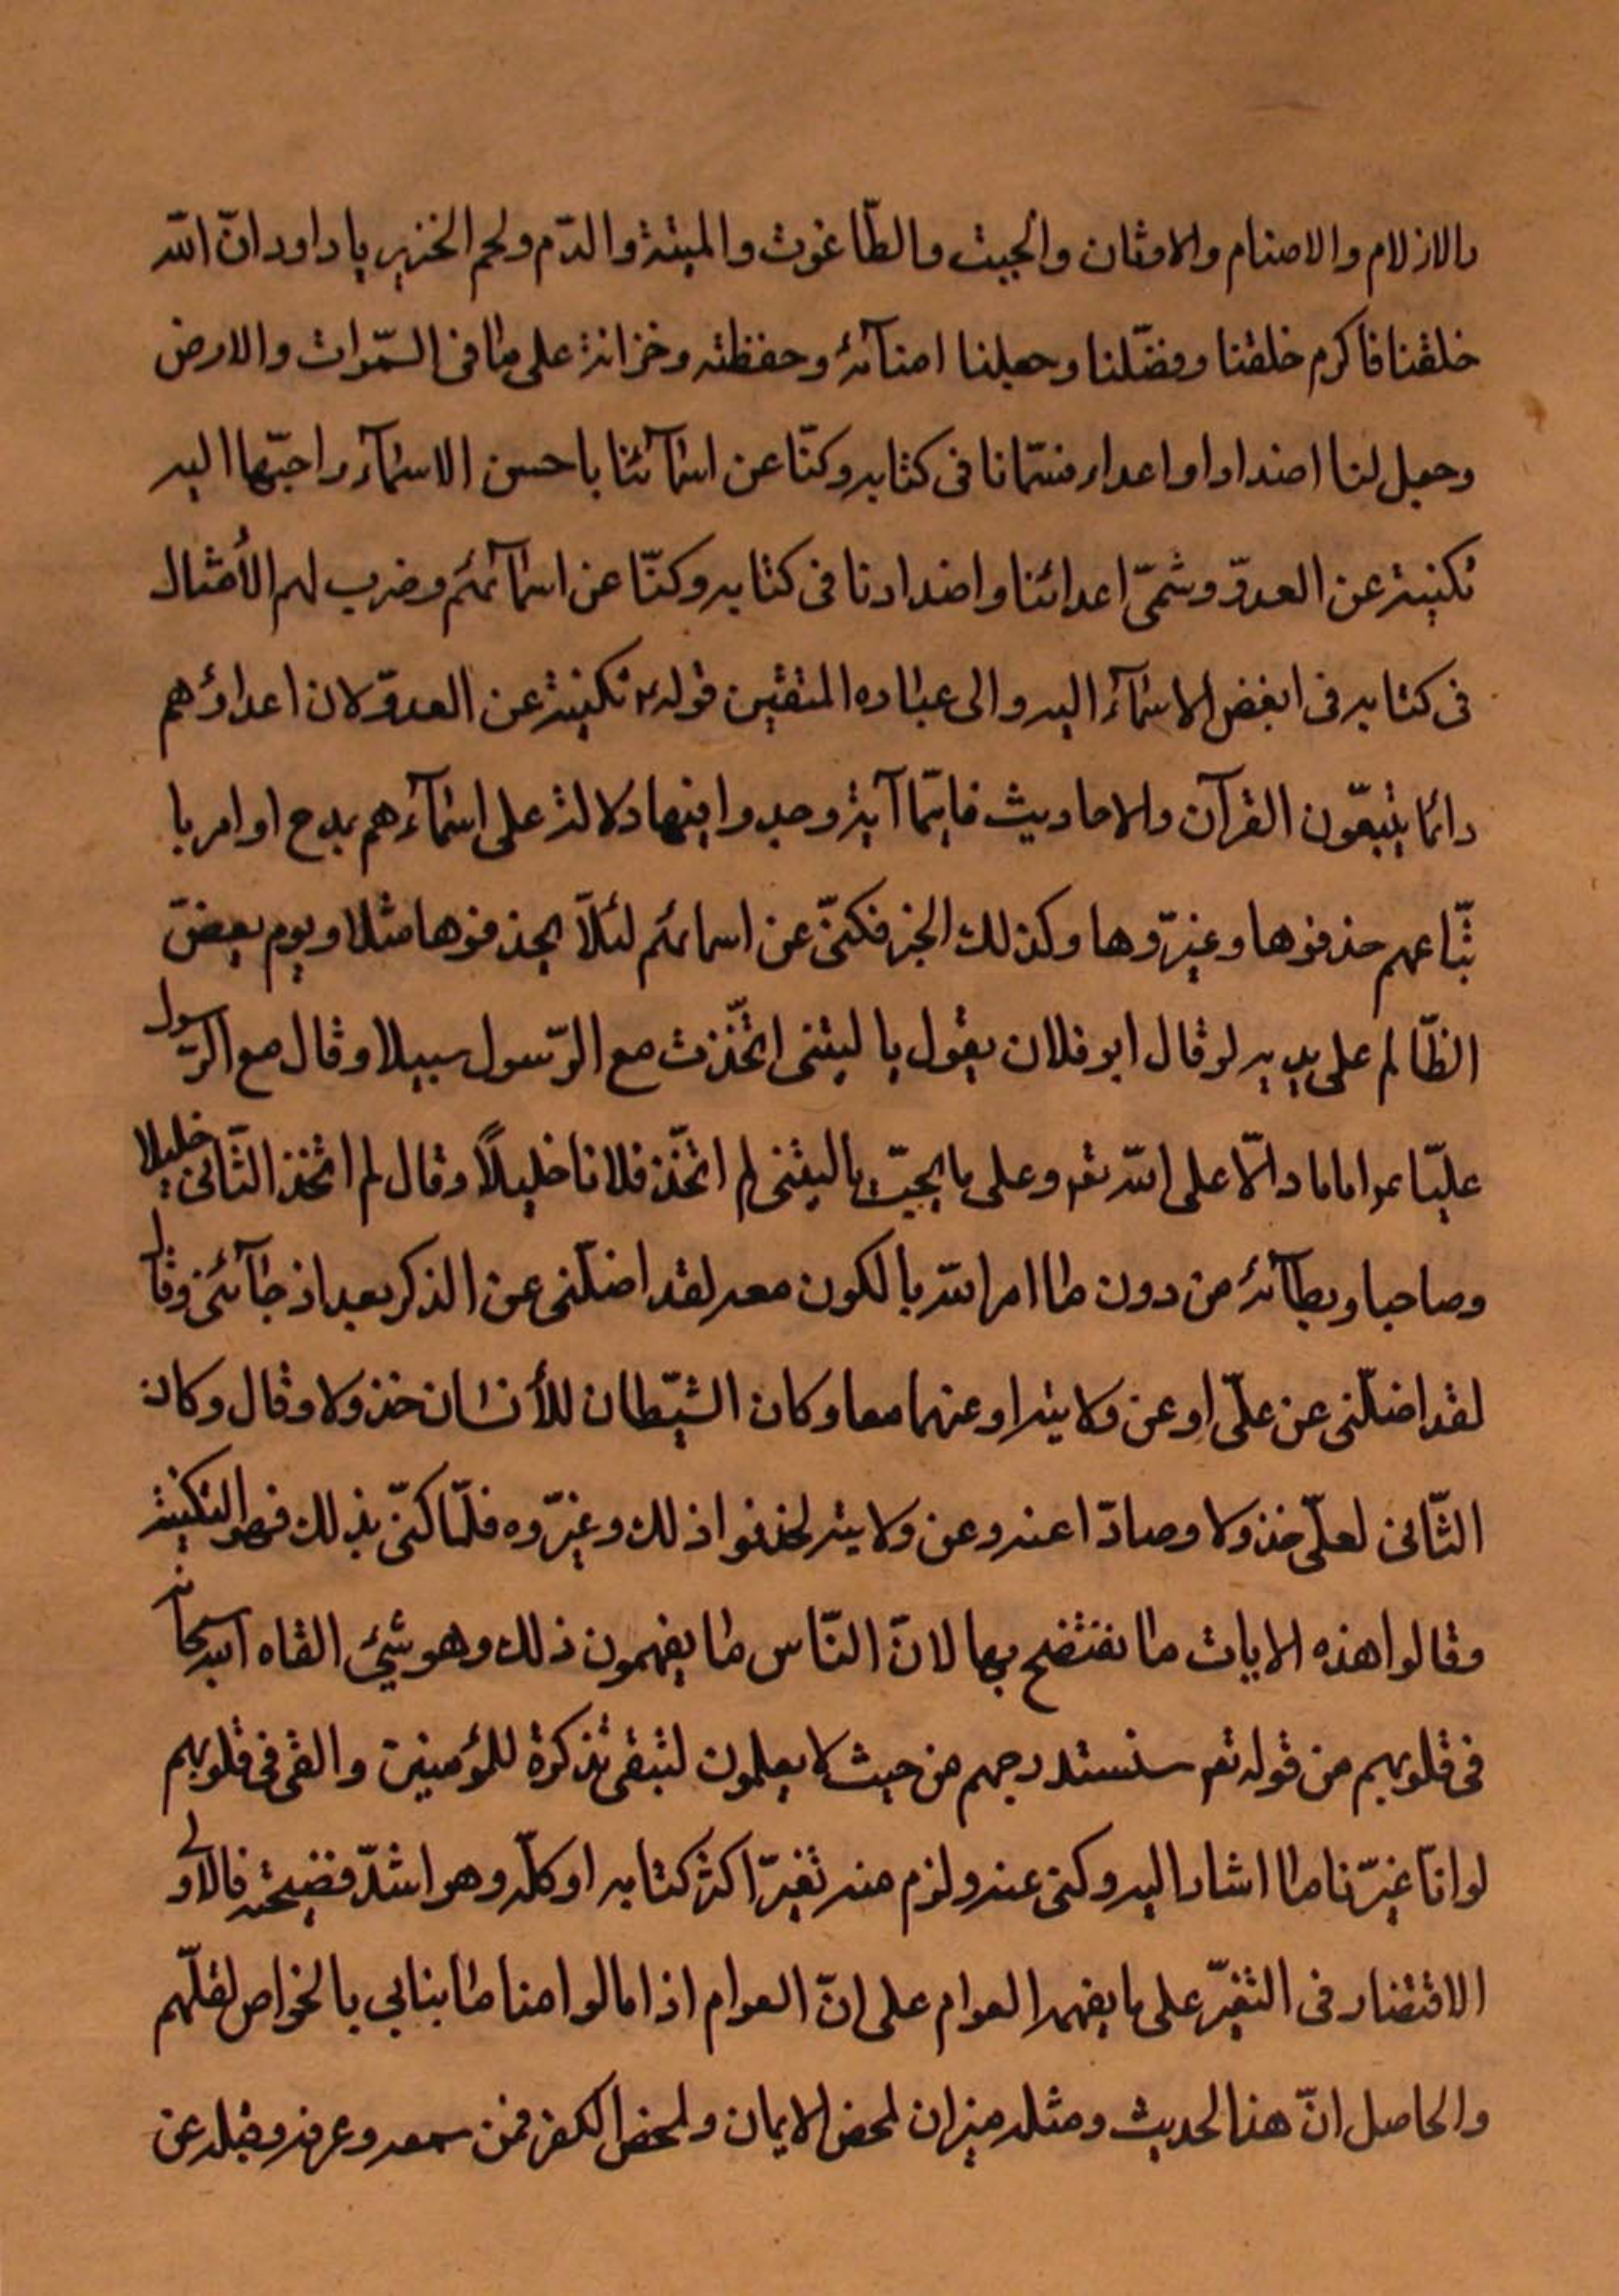 والازلام والاصنام والاوثان والجبت والطّاغوت والميتة والدّم ولحم الخنزير يا داود انّ الله
خلقنا فاكرم خلقنا وفضّلنا وجعلنا امنآئه وحفظته وخزانه على ما فى السّموات والارض
وجعل لنا اضدادا واعداء فسمّانا فى كتابه وكنّا عن اسمآئنا باحسن الاسمآء واحبّها اليه
تكنية عن العدوّ وسمّى اعدائنا واضدادنا فى كتابه وكنّا عن اسمآئهم وضرب لهم الأمثال
فى كتابه فى ابغض الاسمآء اليه والى عباده المتقين قوله تكنية عن العدوّ لان اعداؤهم
دائما يتبعّون القرآن والاحاديث فايّما آية وجدوا فيها دلالة على اسمآءهم بمدح او امر با
تّباعهم حذفوها وغيرّوها وكذلك الخبر فكنّى عن اسمائهم لئلاّ يحذفوها مثلا ويوم يعضّ
الظّالم على يديه لو قال ابو فلان يقول يا ليتنى اتّخذت مع الرّسول سبيلا وقال مع الرّسول
عليّا ع اماما دالّا على الله تعم وعلى ما يحبّ يا ليتنى لم اتّخذ فلانا خليلاً وقال لم اتّخذ الثّانى خليلا
وصاحبا وبطآنة من دون ما امر الله بالكون معه لقد اضلّنى عن الذكر بعد اذ جآئنى وقال
لقد اضلّنى عن علىّ او عن ولايته او عنهما معا وكان الشّيطان للأنسان خذولا وقال وكان
الثّانى لعلىّ خذولا وصادّا عنه وعن ولايته لحذفوا ذلك وغيرّوه فلمّا كنّى بذلك فهو التكنية
وقالوا هذه الايات ما نفتضح بها لانّ النّاس ما يفهمون ذلك وهو شيئ القاه الله سبحانه
فى قلوبهم من قوله تعم سنستدرجهم من حيث لا يعلمون لتبقى تذكرة للمؤمنين والقى فى قلوبهم
لو انّا غيرّنا ما اشار اليه وكنى عنه ولزم منه تغيرّ اكثر كتابه او كلّه وهو اشدّ فضيحة فالاولى
الاقتصار فى التغيرّ على ما يفهمه العوام على انّ العوام اذا مالوا معنا ما بنابى بالخواص لقلّتهم
والحاصل انّ هذا الحديث ومثله ميزان لمحض الايمان ولمحض الكفر فمن سمعه وعرفه وقبله عن